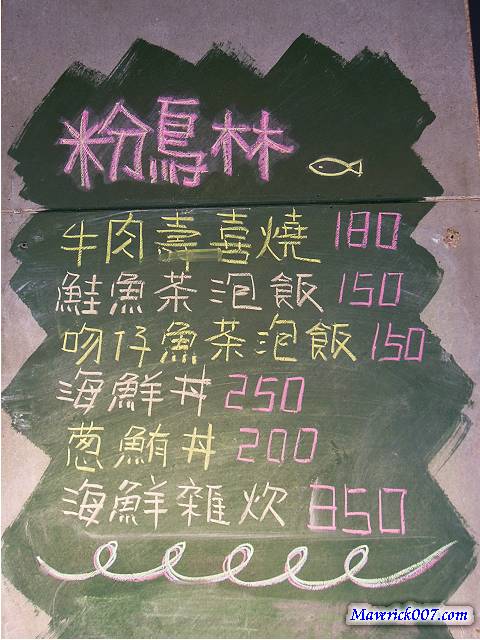 粉鳥林
牛肉壽喜燒 180
鮭魚茶泡飯 150
吻仔魚茶泡飯 150
海鮮丼 250
蔥鮪丼 200
海鮮雜炊 850
Maverick007.com